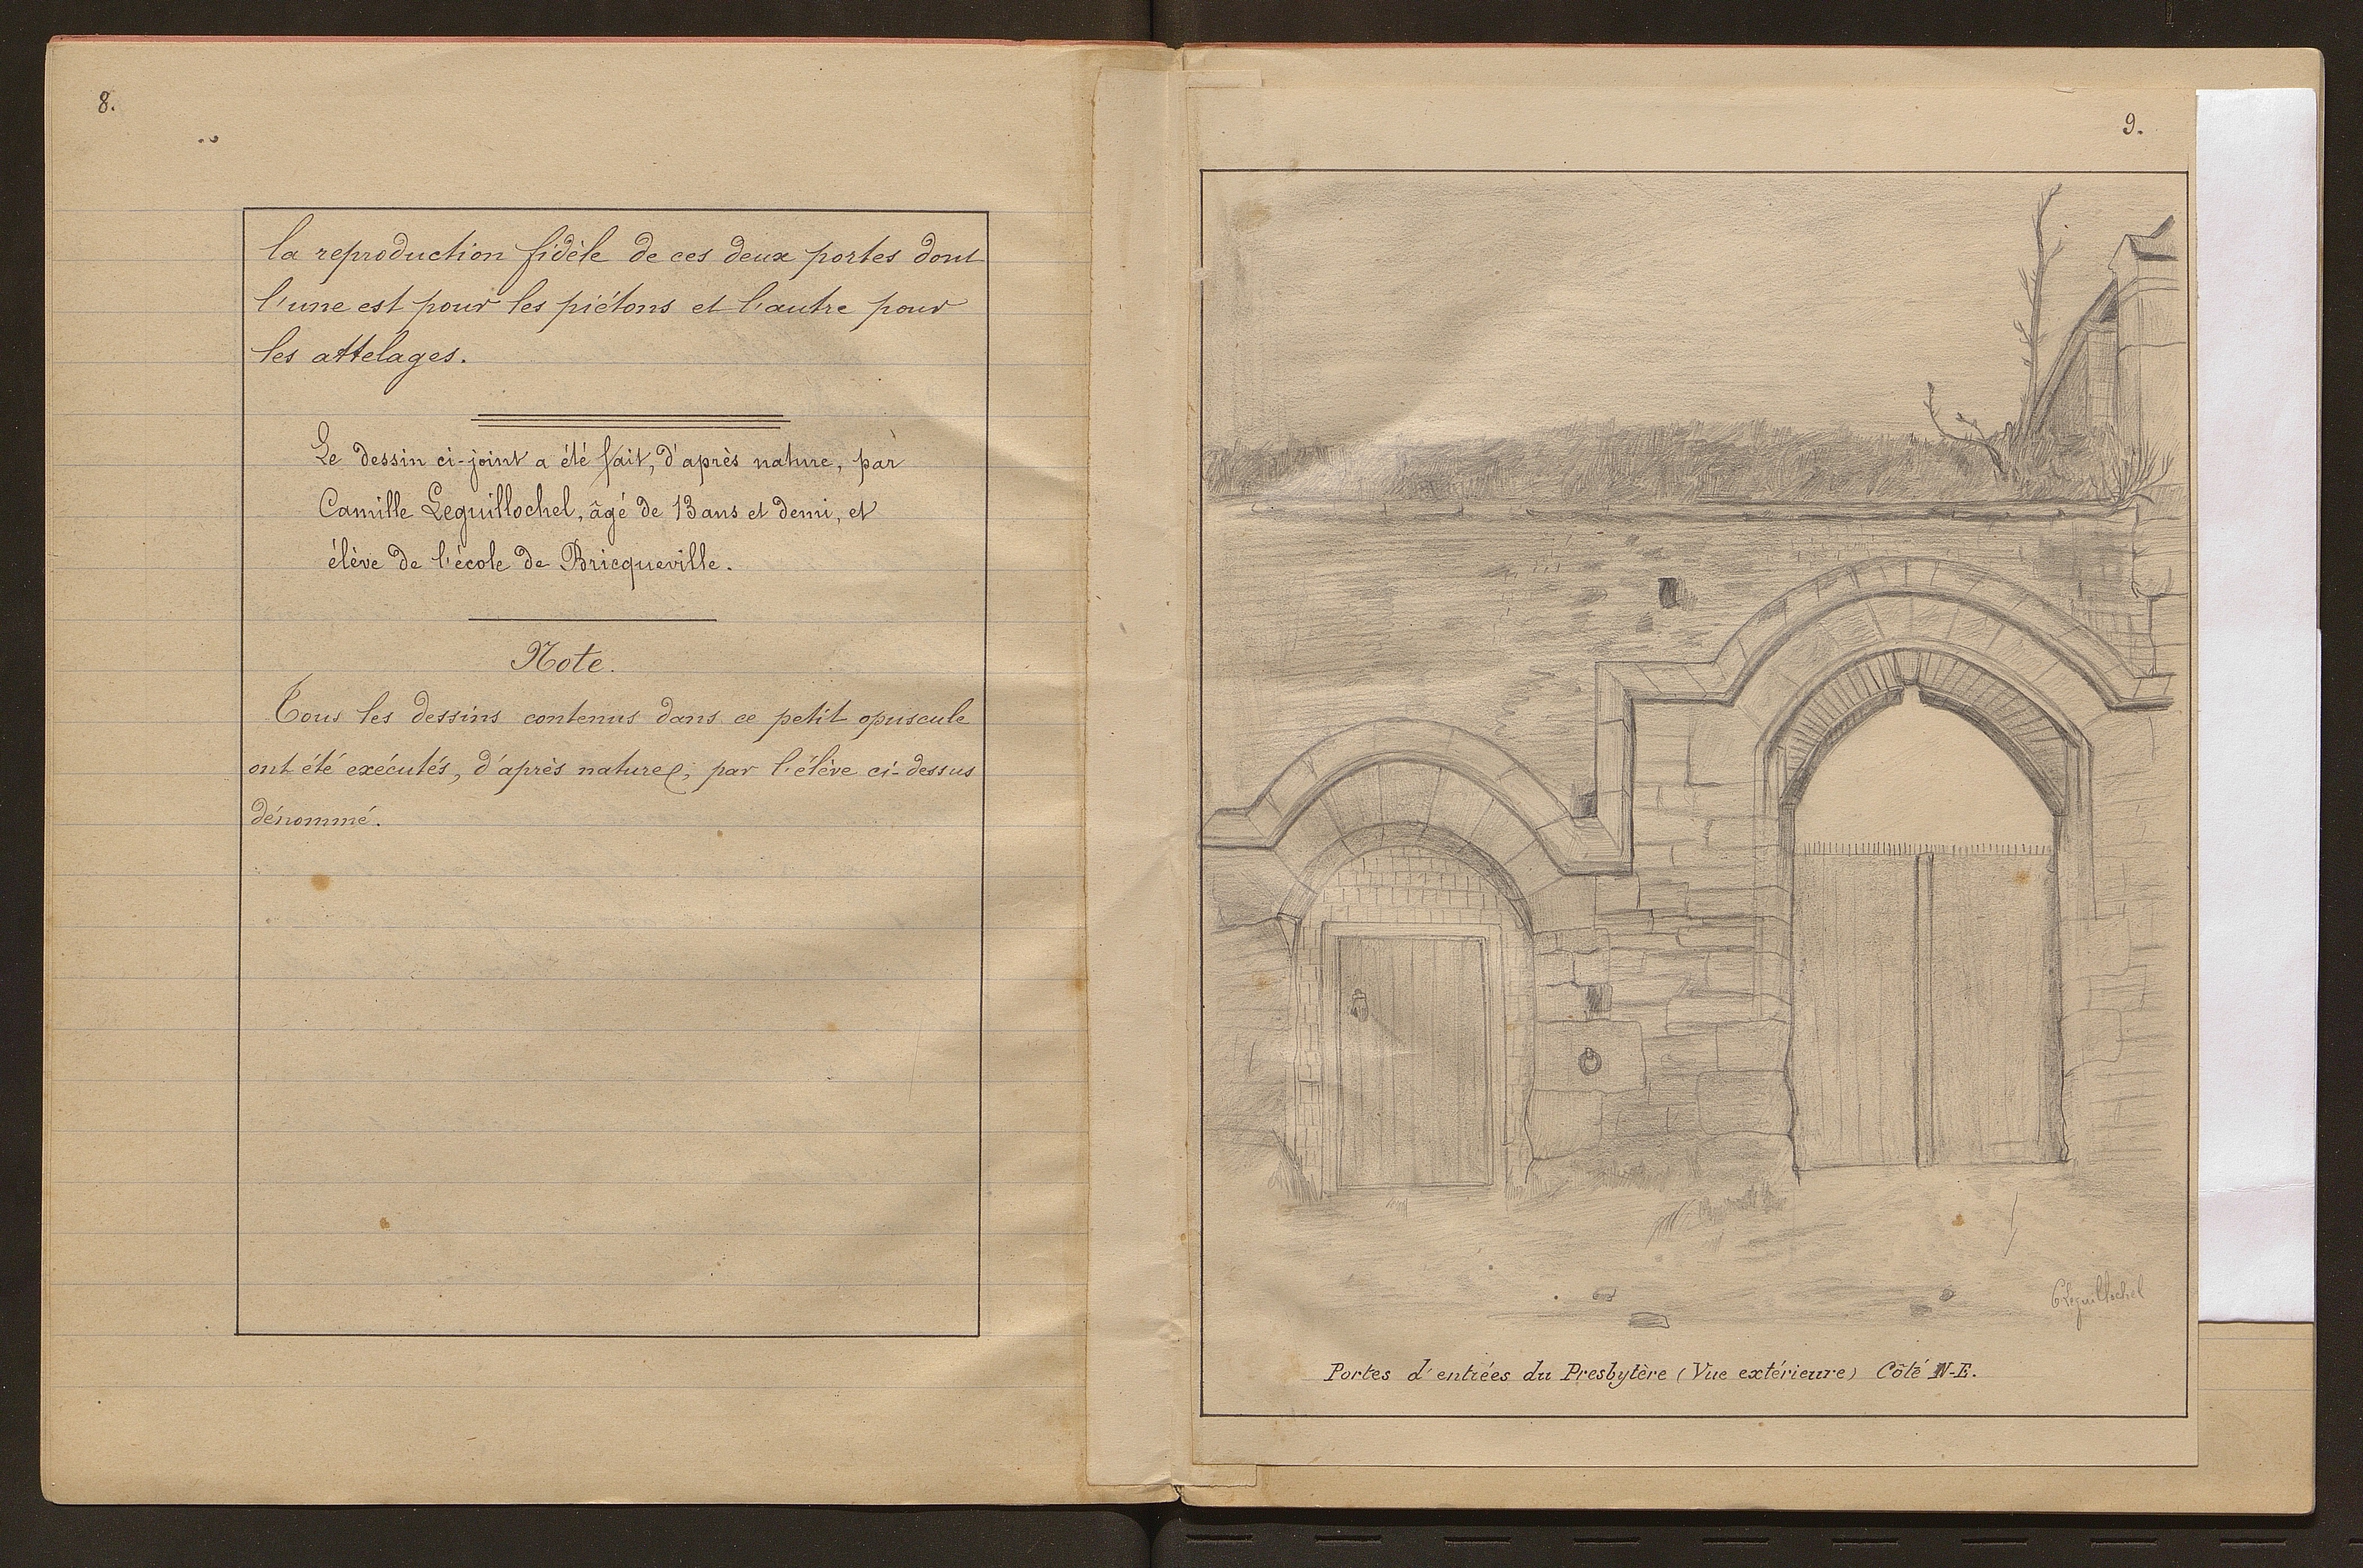 8.
la reproduction fidèle de ces deux portes dont
l'une est pour les piétons et l'autre pour
les attelages.
Le dessin ci-joint a été fait, d'après nature, par
Camille Leguillochel, âgé de 13 ans et demi, et
élève de l'école de Bricqueville.
Note.
Tous les dessins contenus dans ce petit opuscule
ont été exécutés, d'après nature, par l'élève ci-dessus
dénommé.
9.
CLeguillochel
Portes d'entrées du Presbytère (Vue extérieure) Côté N-E.